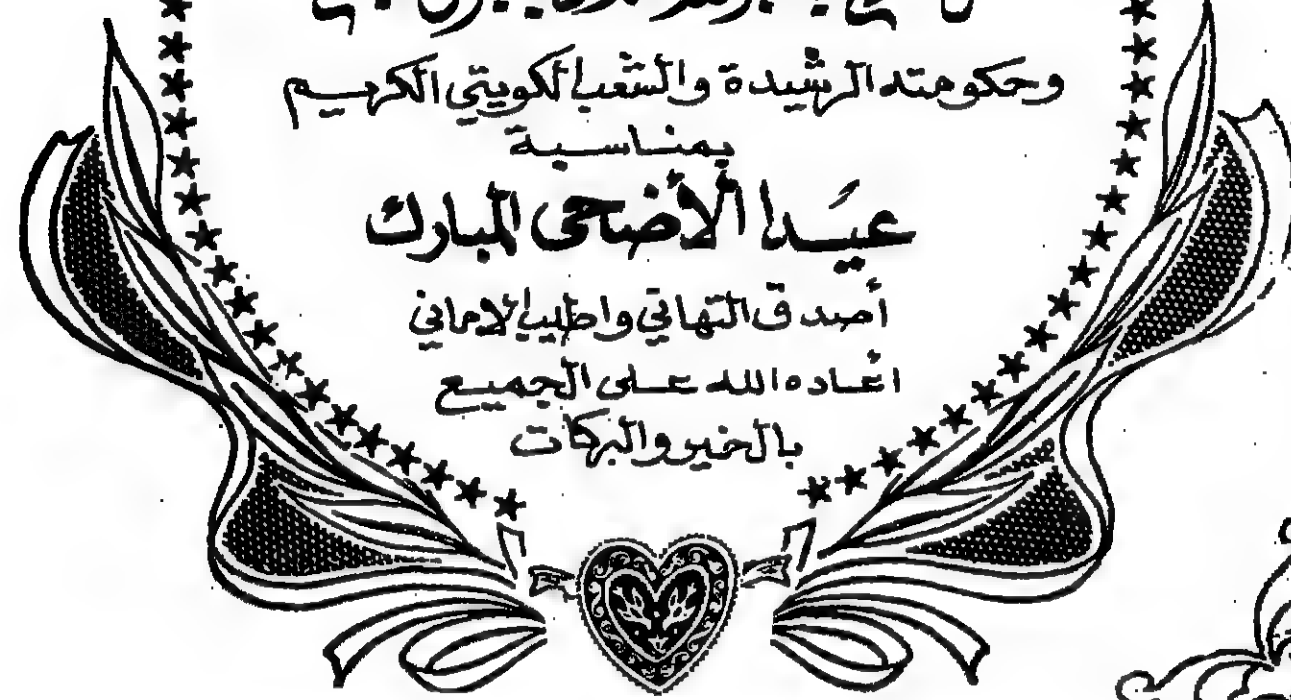 وحكومته الرشيدة والشعب الكويتي الكريم
بمناسبة
عيد الأضحى المبارك
أصدق التهاني واطيب الاماني
أعاده الله على الجميع
بالخير والبركات